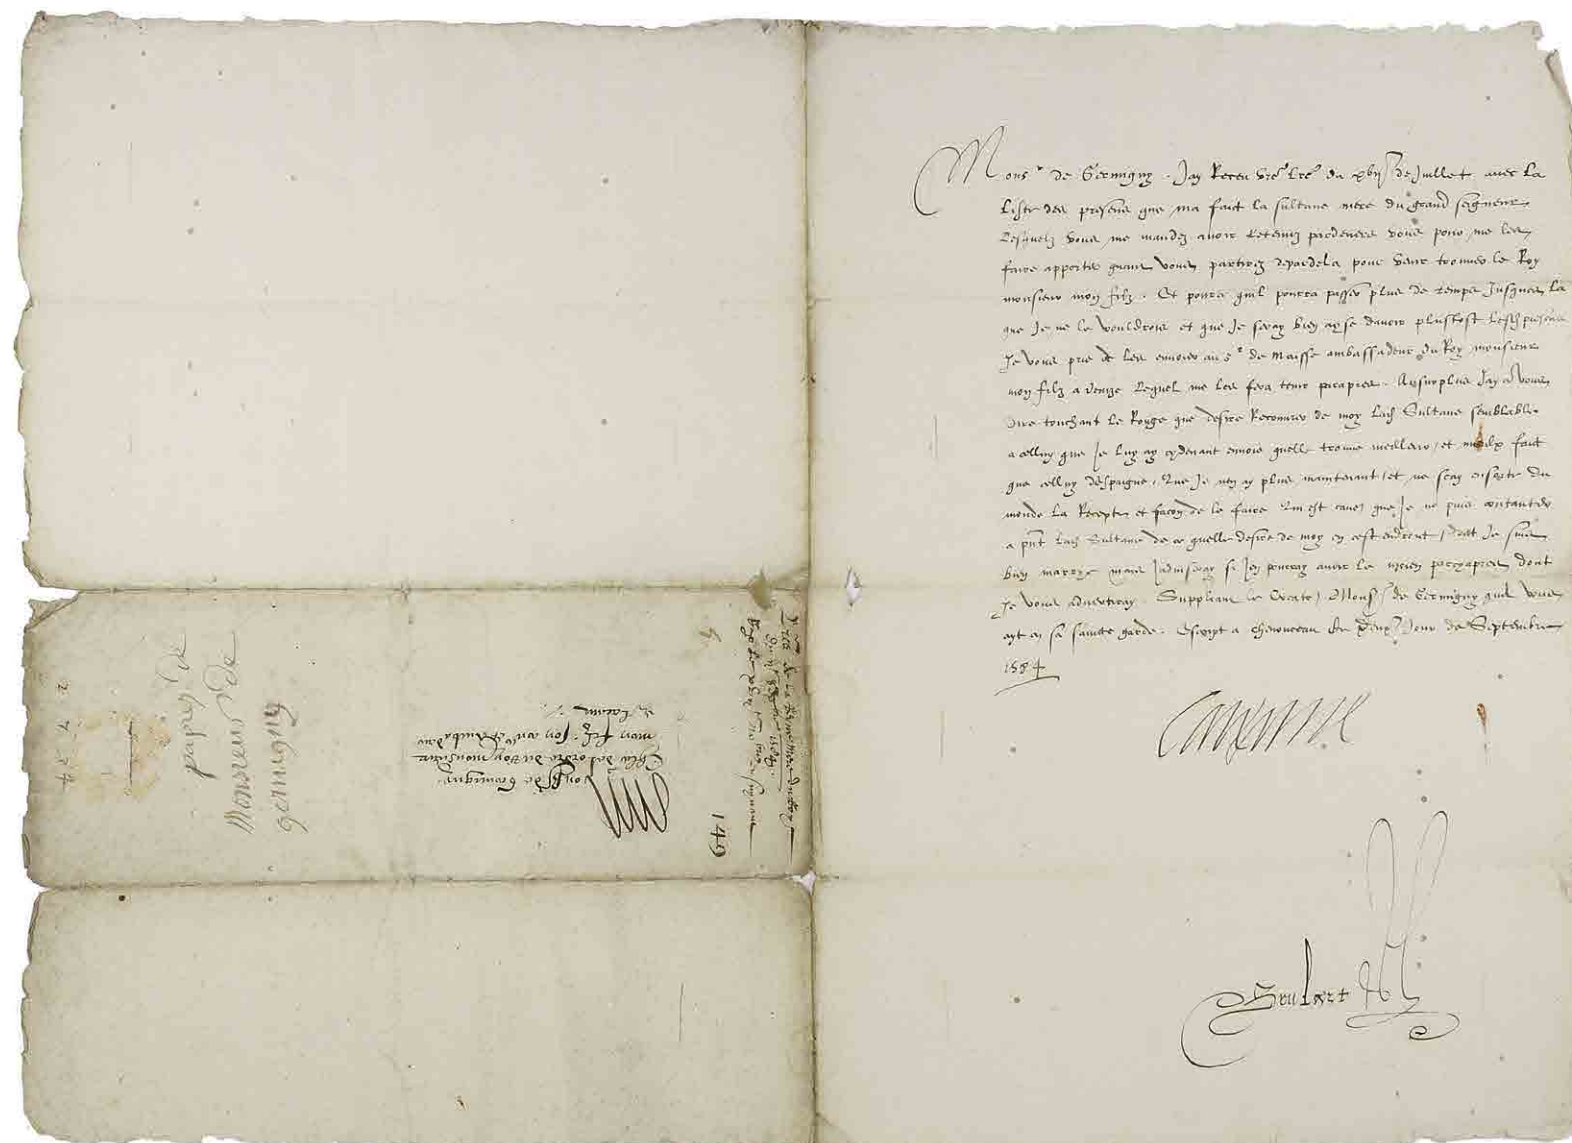 Mons.r de Germigny. Jay Receu v're l're du xvij de Juillet avec la
liste des presens que ma faict la sultane mere du grand seigneur
lesquelz vous me mandez avoir retenuz pardevers vous pour me les
faire apporter quant vous partirez depardela pour venir trouver le Roy
monsieur mon filz. Et pource quil pourra passer plus de temps Jusques la
que Je ne le vouldrois et que Je seray bien ayse davoir plustost lesd. presens
Je vous prie de les envoier au s.r de Maisse ambassadeur du Roy monsieur
mon filz a Venize lequel me les fera tenir Ausurplus Jay a vous
dire touchant le Rouge que desire Recouvrer de moy lad. Sultane semblable
a celluy que Je luy ay cydevant envoié quelle trouve meilleur et mieulx faict
que celluy despaigne, Que Je nen ay plus maintenant et ne scay du
monde la Recepte et facon de le faire Qui est cause que Je ne puis contanter
a p'nt lad. Sultane de ce quelle desire de moy en cest endroict, dont Je suis
bien marrye mais Jadviseray si Jen pourray avoir le moien dont
Je vous advertiray. Suppliant le Createur, Mons. de Germigny quil vous
ayt en sa saincte garde. Escript a Chenonceau le Jour de Septembre
1584
Caterine
Brulart
149
l're de la Royne mere du Roy
Mons. de Germigny
Ch'lr de lordre du Roy monsieur
mon filz, son ambassadeur
en Levant
papies de
Monsieur de
germigny